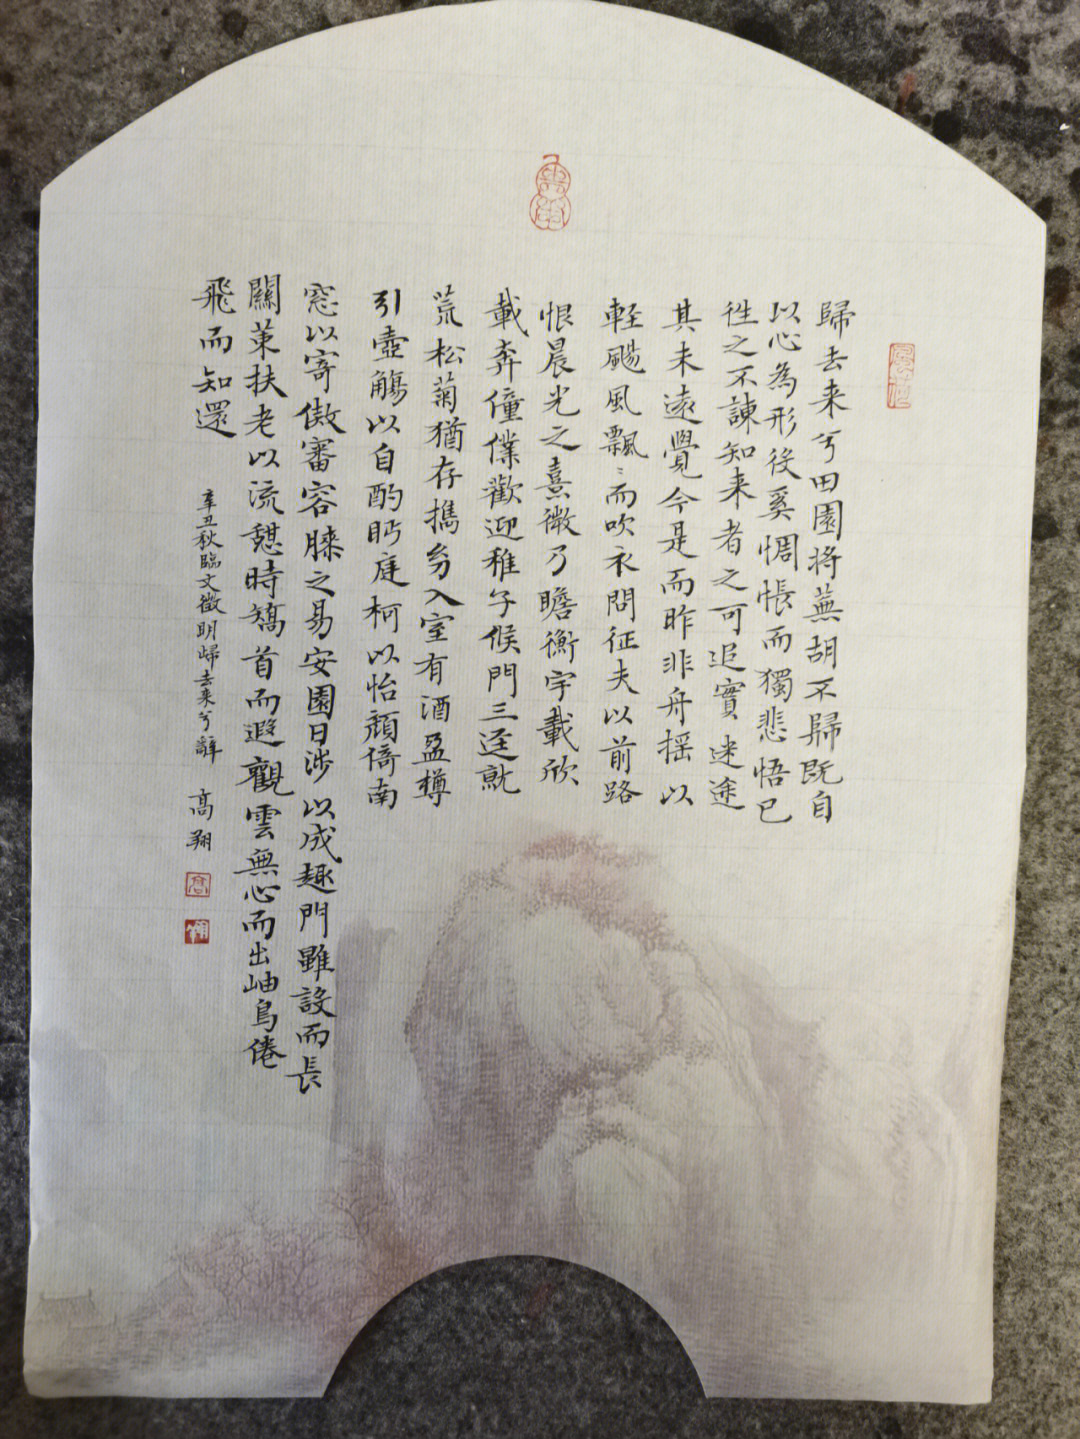 歸去来兮田園将蕪胡不歸既自
以心為形役奚惆悵而獨悲悟已
往之不諫知来者之可追實迷途
其未遠覺今是而昨非舟摇以
軽颺風飄〻而吹衣問征夫以前路
恨晨光之熹微乃瞻衡宇載欣
載奔僮僕歡迎稚子候門三逕就
荒松菊猶存攜幼入室有酒盈樽
引壺觴以自酌眄庭柯以怡顔倚南
窓以寄傲審容膝之易安園日涉以成趣門雖設而長
關策扶老以流憩時矯首而遐觀雲無心而出岫鳥倦
飛而知還
辛丑秋臨文徵明歸去来兮辭
高翔